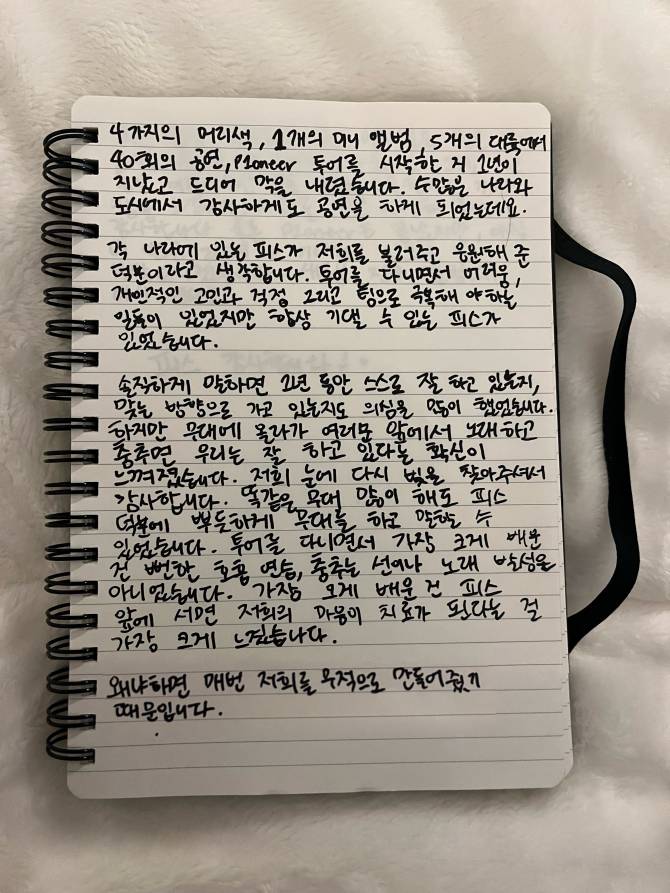 4가지의 머리색, 1개의 미니 앨범, 5개의 대륙에서
40회의 공연, P1oneer 투어를 시작한 지 1년이
지났고 드디어 막을 내렸습니다. 수많은 나라와
도시에서 감사하게도 공연을 하게 되었는데요.
각 나라에 있는 피스가 저희를 불러주고 응원해 준
덕분이라고 생각합니다. 투어를 다니면서 어려움,
개인적인 고민과 걱정 그리고 팀으로 극복해 야하는
일들이 있었지만 항상 기댈 수 있는 피스가
있었습니다.
솔직하게 말하면 1년 동안 스스로 잘 하고 있는지,
맞는 방향으로 가고 있는지도 의심을 많이 했었습니다.
하지만 무대에 올라가 여러분 앞에서 노래하고
춤추면 우리는 잘 하고 있다는 확신이
느껴졌습니다. 저희 눈에 다시 빛을 찾아주셔서
감사합니다. 똑같은 무대 많이 해도 피스
덕분에 뿌듯하게 무대를 하고 말할 수
있었습니다. 투어를 다니면서 가장 크게 배운
건 뻔한 호흡 연습, 춤추는 선이나 노래 발성은
아니었습니다. 가장 크게 배운 건 피스
앞에 서면 저희의 마음이 치료가 된다는 걸
가장 크게 느꼈습니다.
왜냐하면 매번 저희를 무적으로 만들어줬기
때문입니다.